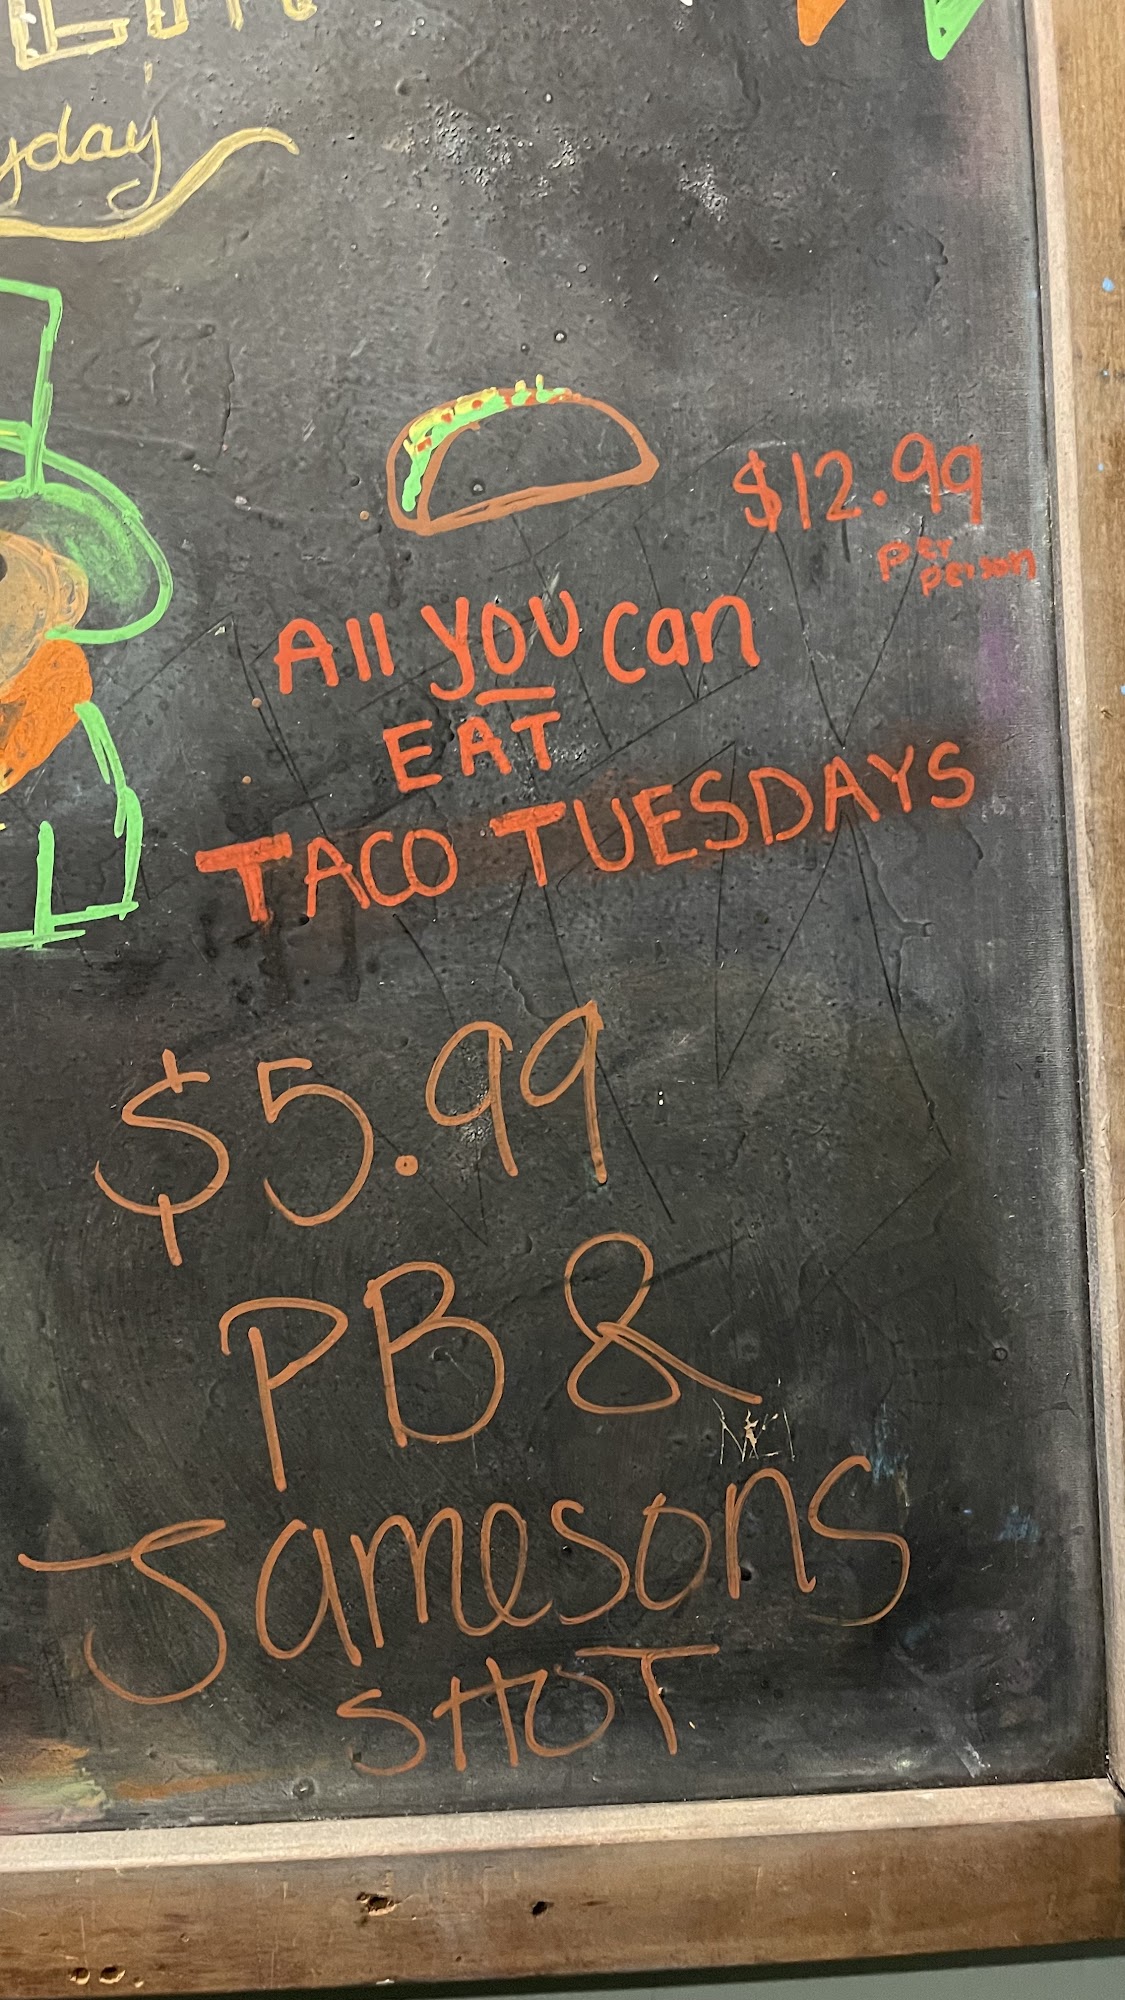 $12.99
per
person
All you can
EAT
TACO TUESDAYS
$5.99
PB &
Jamesons
SHOT